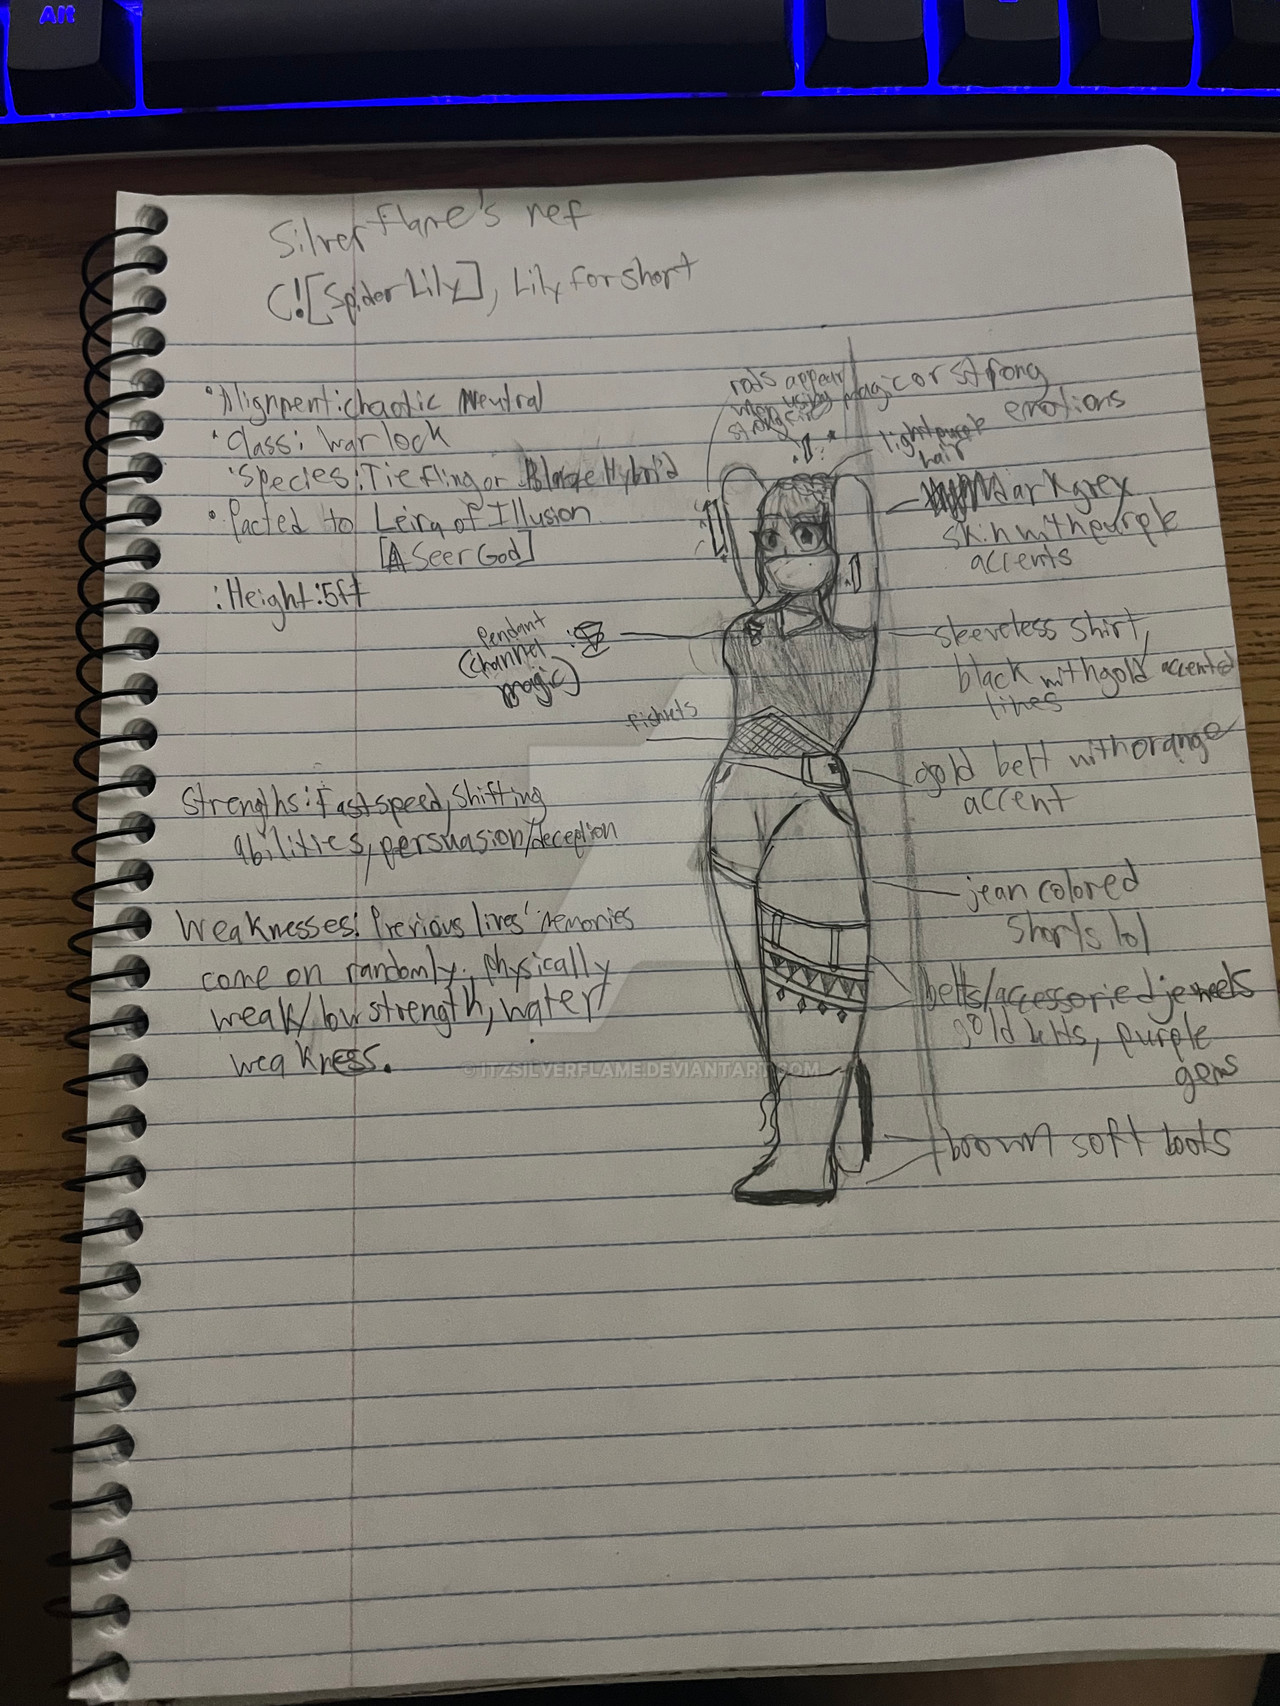 Alt
Silverflame's ref
C![Spider Lily], Lily for short
• Alignment: chaotic Neutral
• Class: Warlock
• Species: Tiefling or Blaze Hybrid
• Pacted to Leira of Illusion
[A Seer God]
: Height: 5ft
Strengths: Fast speed, shifting
abilities, persuasion/deception
Weaknesses: Previous lives' memories
come on randomly, physically
weak/low strength, water
weakness.
rods appear
when using magic or strong
emotions
light purple
hair
dark grey
skin with purple
accents
Pendant
(channel
magic)
sleeveless shirt,
black with gold accented
lines
fishnets
gold belt with orange
accent
jean colored
shorts lol
belts/accessoried jewels
gold belts, purple
gems
brown soft boots
© ITZSILVERFLAME.DEVIANTART.COM